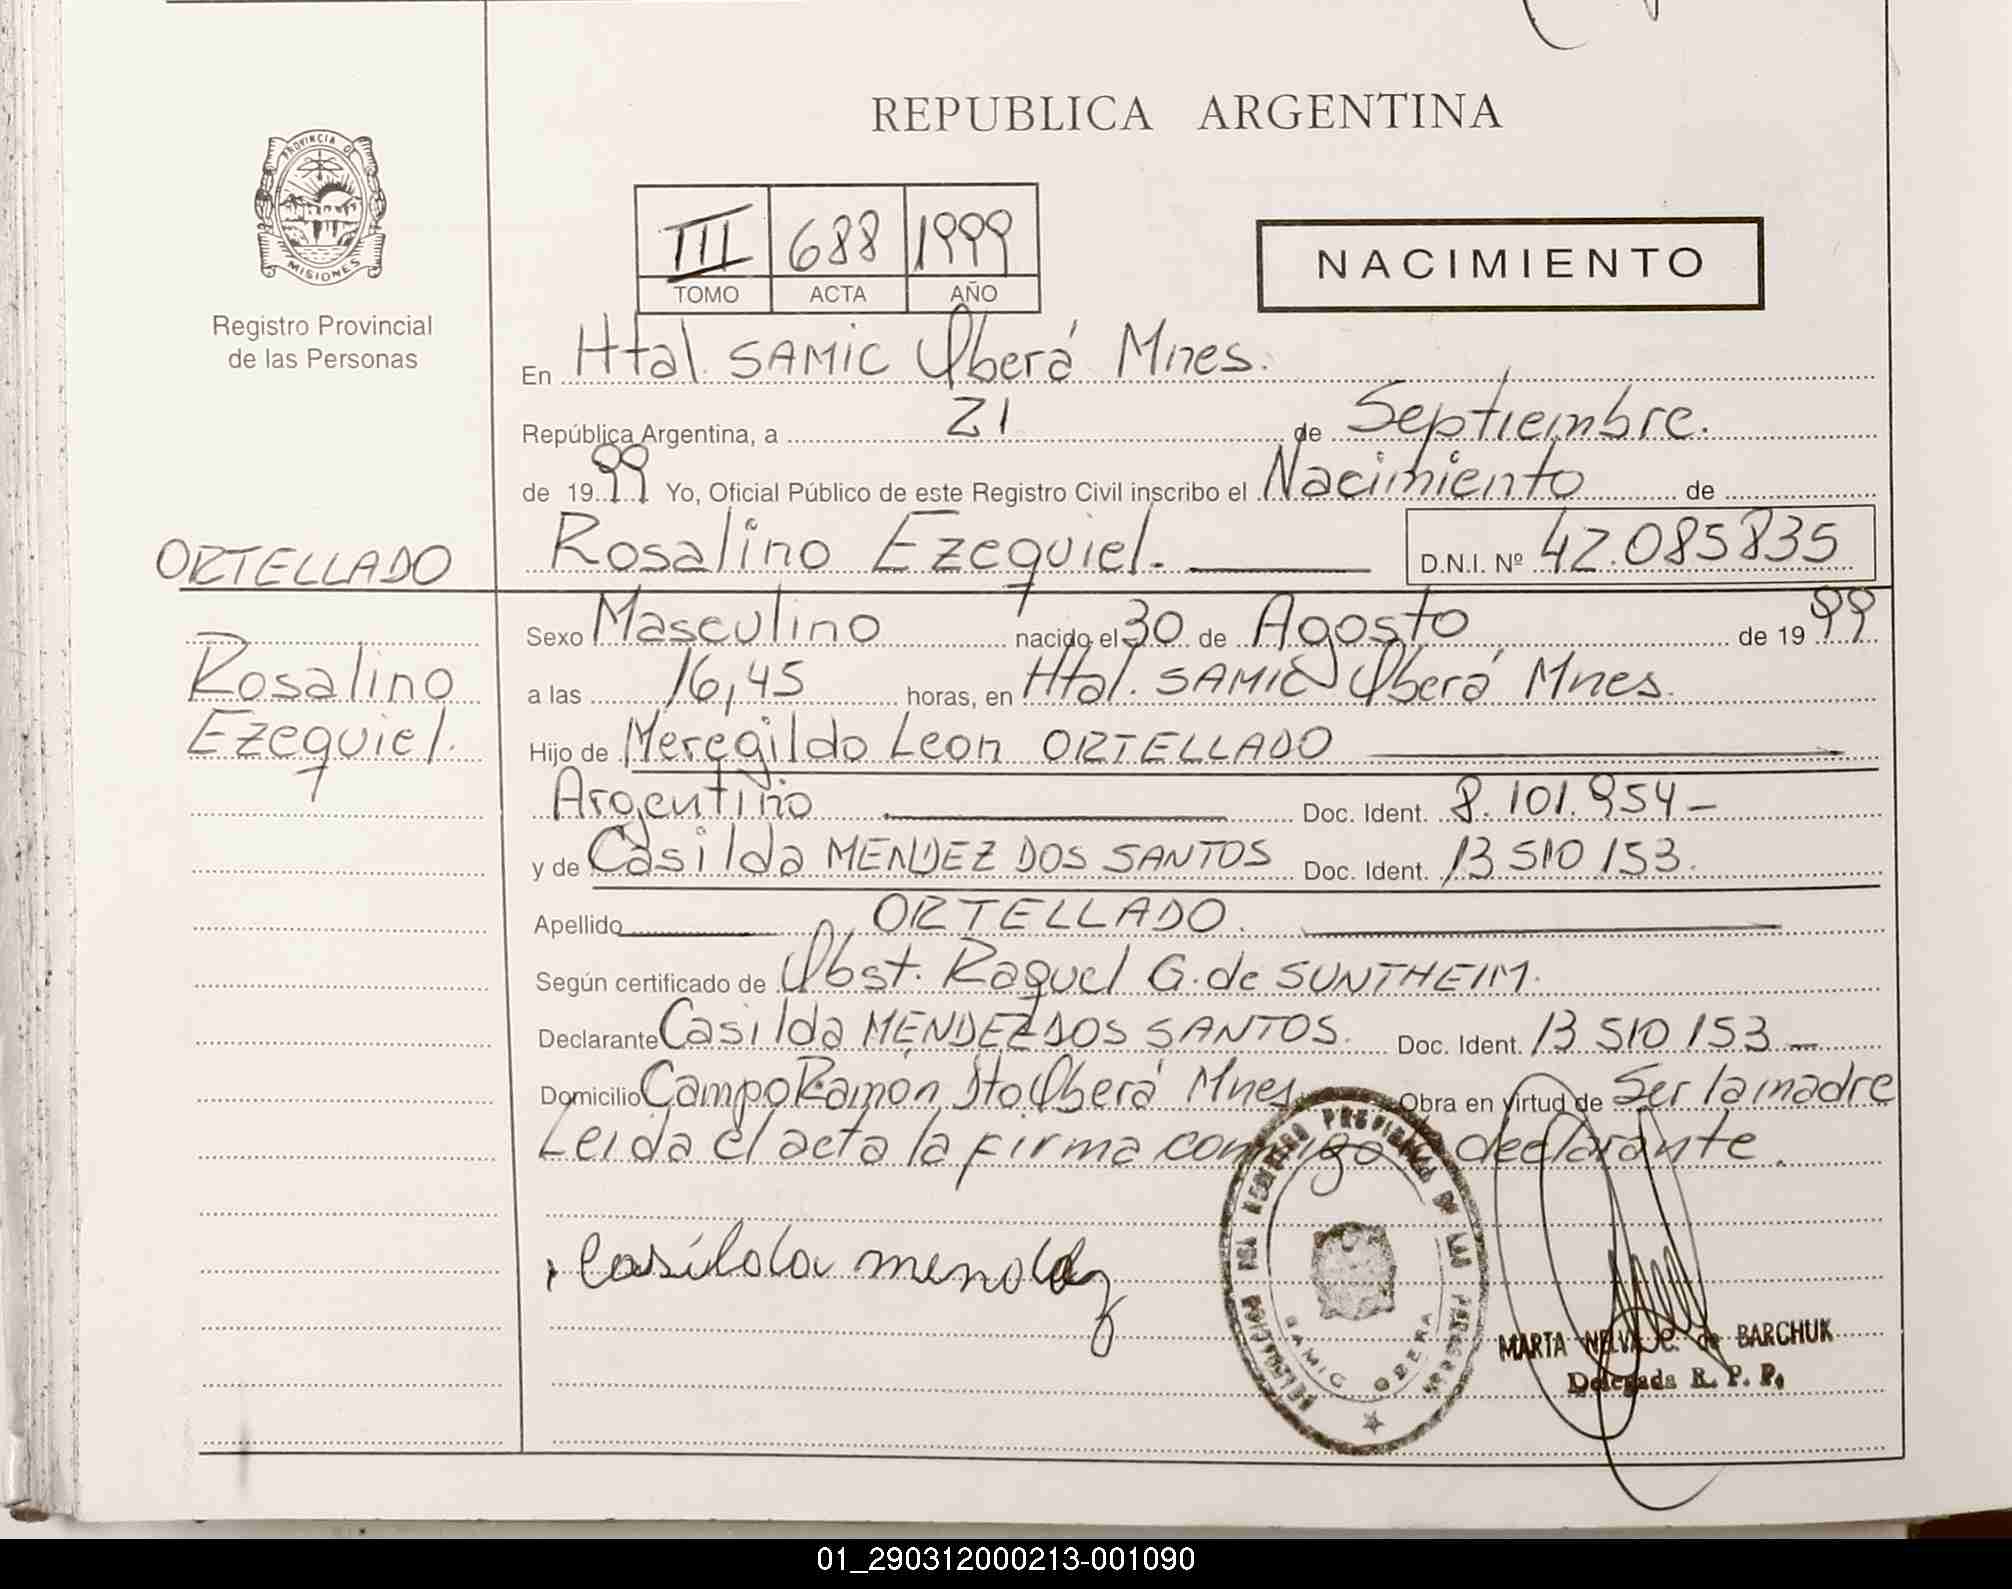 REPUBLICA ARGENTINA
PROVINCIA DE
MISIONES
Registro Provincial
de las Personas
III 688 1999
TOMO ACTA AÑO
NACIMIENTO
En Htal. SAMIC Oberá Mnes.
República Argentina, a 21 de Septiembre.
de 1999 Yo, Oficial Público de este Registro Civil inscribo el Nacimiento de
ORTELLADO
Rosalino Ezequiel. D.N.I. Nº 42.085835
Rosalino
Ezequiel.
Sexo Masculino nacido el 30 de Agosto de 1999
a las 16,45 horas, en Htal. SAMIC Oberá Mnes.
Hijo de Meregildo Leon ORTELLADO
Argentino Doc. Ident. 8.101.954-
y de Casilda MENDEZ DOS SANTOS Doc. Ident. 13 510 153.
Apellido ORTELLADO.
Según certificado de Obst. Raquel G. de SUNTHEIM.
Declarante Casilda MENDEZ DOS SANTOS. Doc. Ident. 13 510 153-
Domicilio Campo Ramon Oberá Mnes Obra en virtud de Ser la madre
Leida el acta la firma conmigo declarante.
Casilda mendez
DELEGACION DEL REGISTRO PROVINCIAL DE LAS PERSONAS
SAMIC OBERA
MARTA NELVA C. de BARCHUK
Delegada R. P. P.
01_290312000213-001090